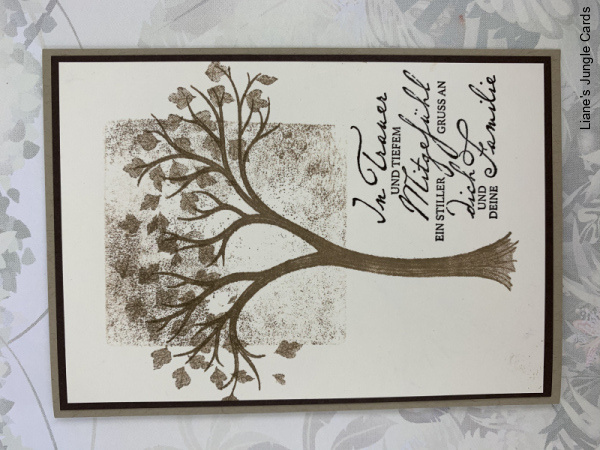 In Trauer
UND TIEFEM
Mitgefühl
EIN STILLER GRUSS AN
dich
UND
DEINE Familie
Liane's Jungle Cards